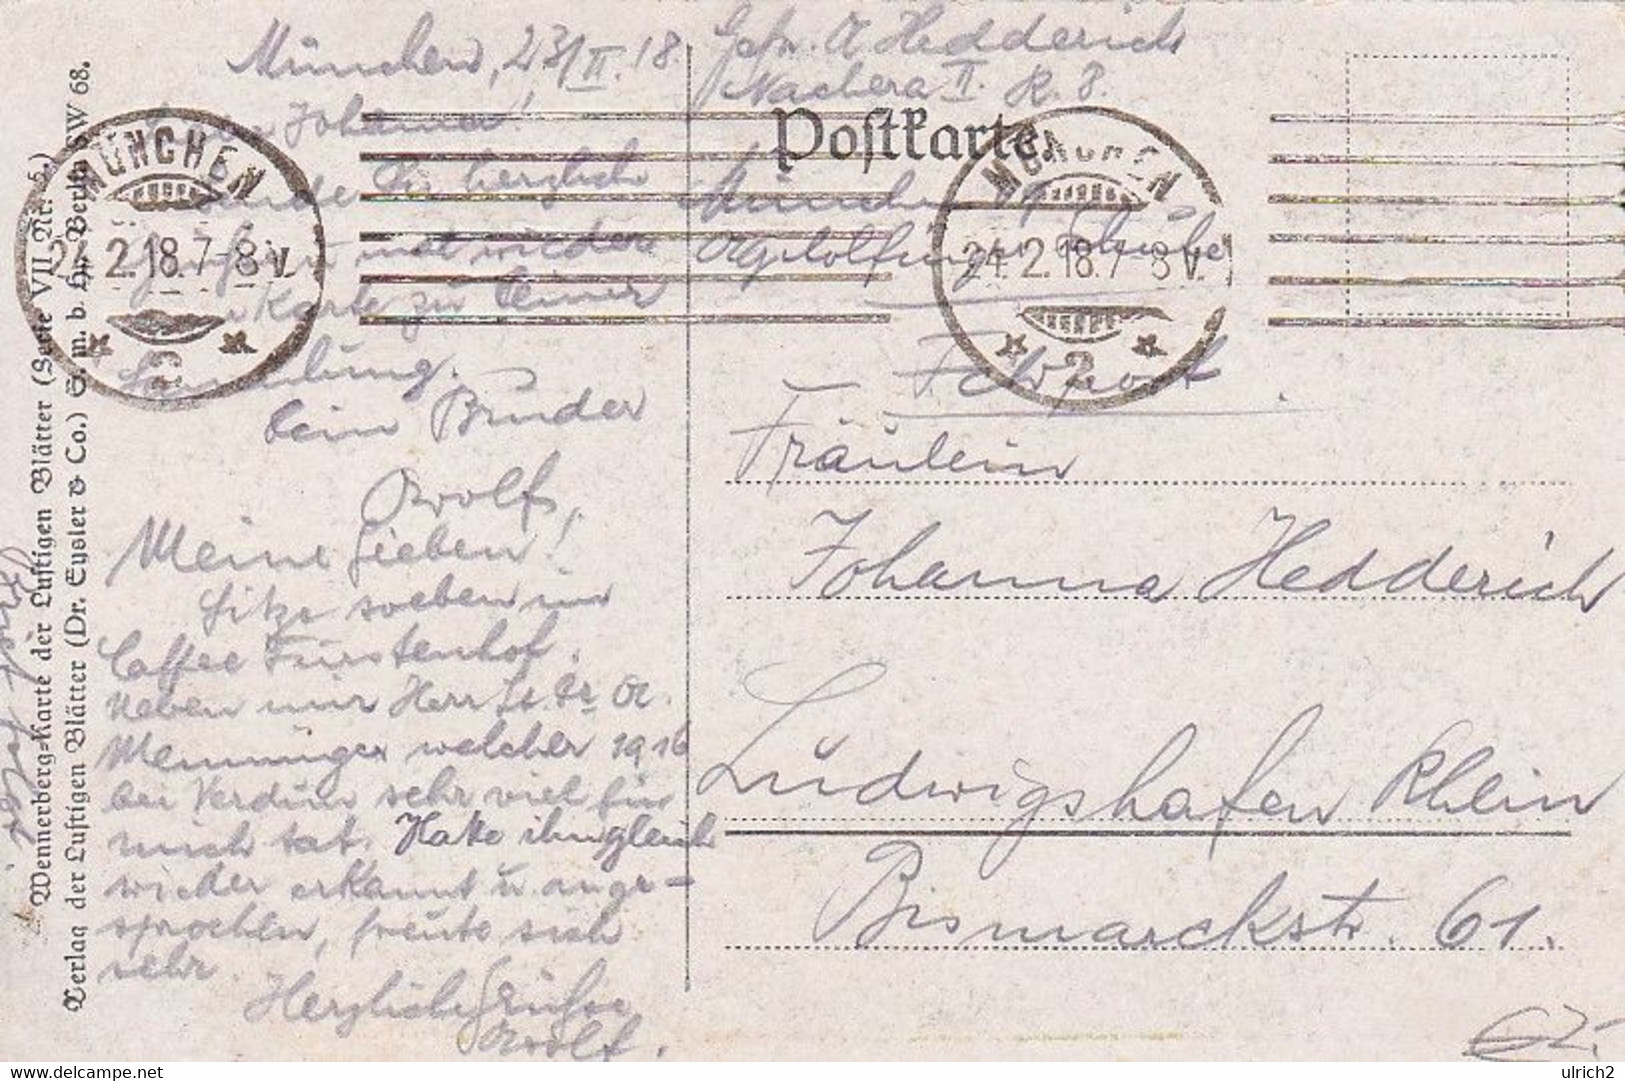 München, 23/II.18.
Johanna!
Dir herzliche
und wieder
Karte zu Deiner
Sammlung.
Dein Bruder
Adolf.
Meine Lieben!
Sitze soeben im
Caffee Fürstenhof.
Neben mir Herr Lt. Dr. A.
Menninger welcher 1916
bei Verdun sehr viel für
mich tat. Habe ihn gleich
wieder erkannt u. ange-
sprochen, freute sich
sehr.
Herzliche Grüße
Adolf.
Gefr. A Hedderich
II. K. 8.
Postkarte
München
Agilolfinger Schule
Feldpost.
Fräulein
Johanna Hedderich
Ludwigshafen Rhein
Bismarckstr. 61.
MÜNCHEN
24.2.18.7-8V.
* 2 *
MÜNCHEN
24.2.18.7-8V.
* 2 *
Wennerberg-Karte der Lustigen Blätter (Serie VII Nr. 5)
Verlag der Lustigen Blätter (Dr. Eysler & Co.) G. m. b. H., Berlin SW 68.
delcampe.net
ulrich2